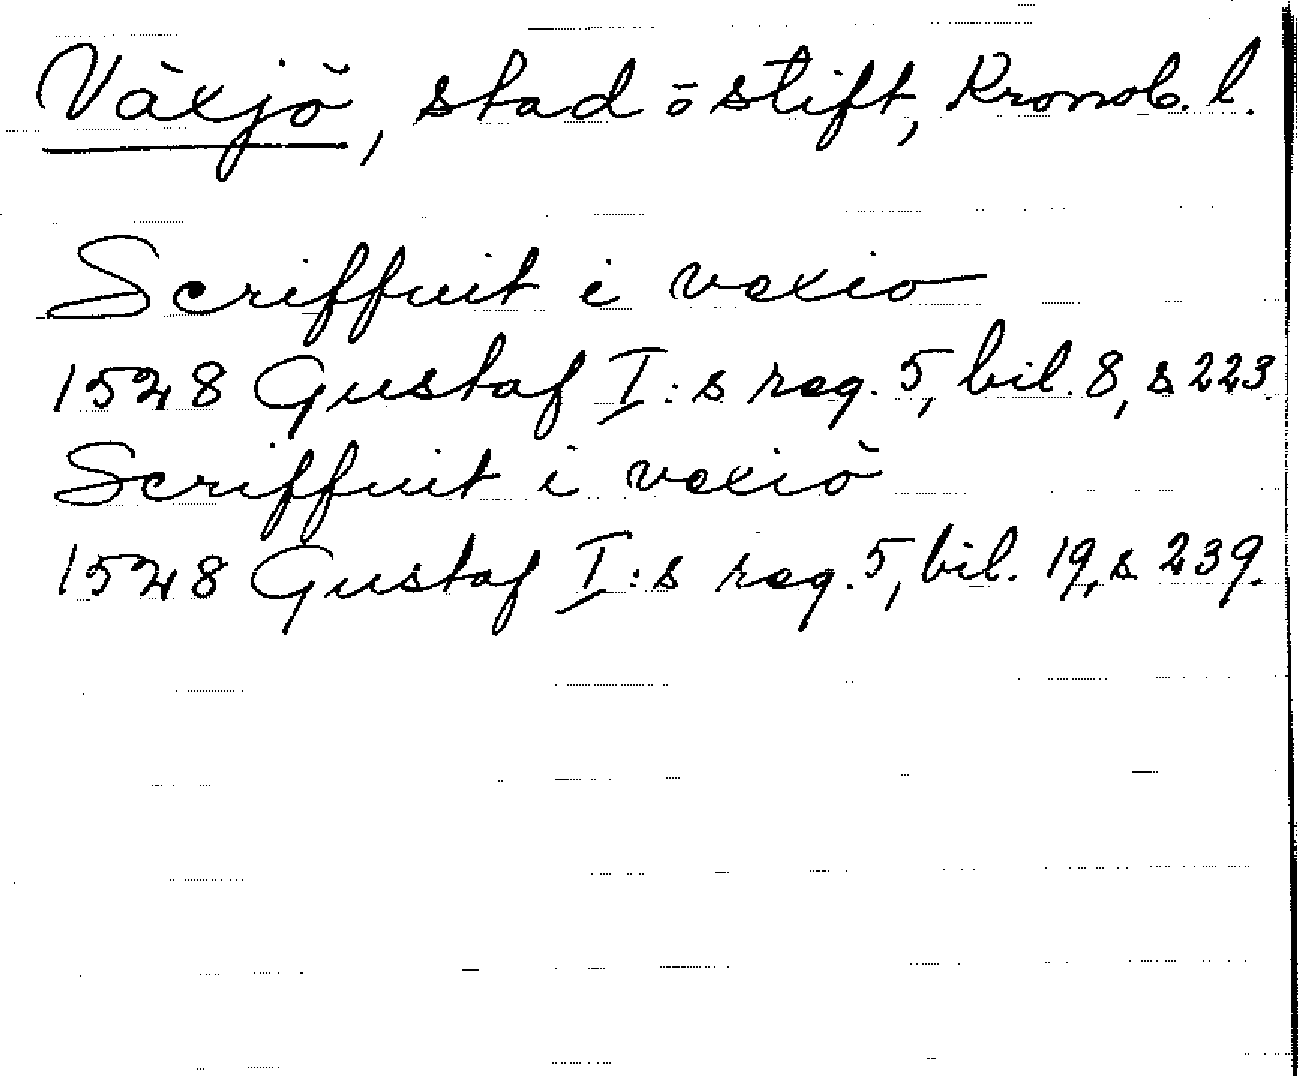 Växjö, stad o stift, Kronob. l.
Scriffuit i vexio
1528 Gustaf I:s reg. 5, bil. 8, s 223.
Scriffuit i vexiö
1528 Gustaf I:s reg. 5, bil. 19, s 239.